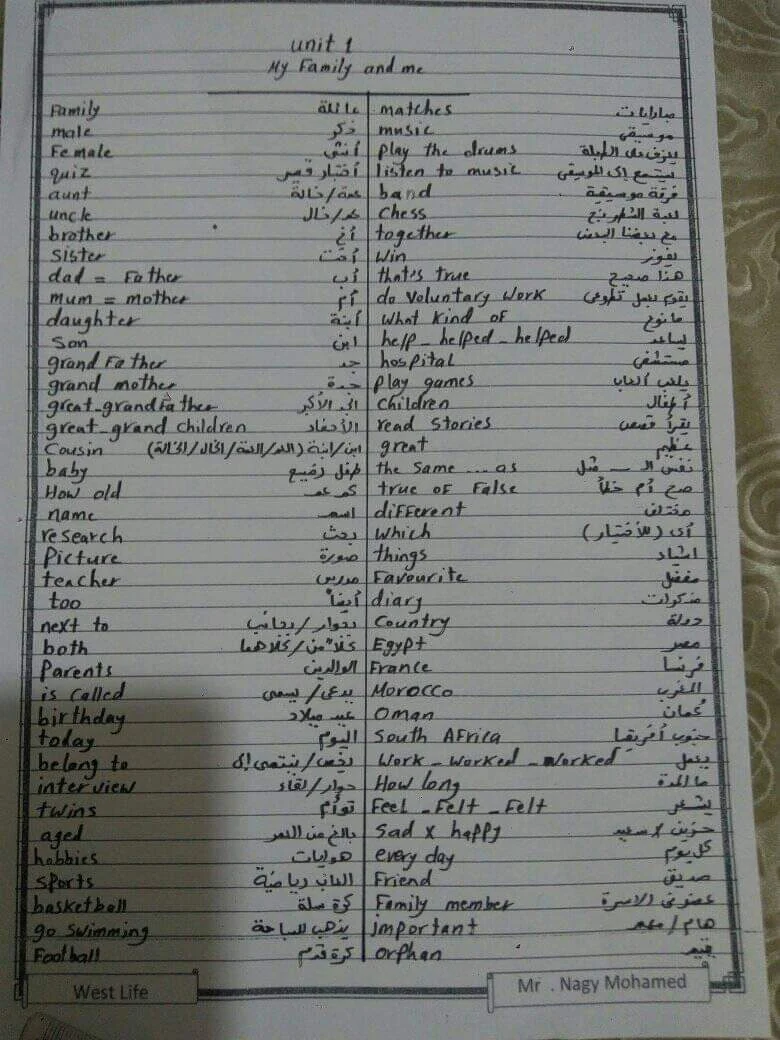 unit 1
My Family and me
Family عائلة
male ذكر
Female أنثى
quiz أختبار قصير
aunt عمة/خالة
uncle عم/خال
brother أخ
Sister أخت
dad = Father أب
mum = mother أم
daughter أبنة
Son ابن
grand Father جد
grand mother جدة
great-grandFather الجد الأكبر
great-grand children الأحفاد
Cousin ابن/ابنة (العم/العمة/الخال/الخالة)
baby طفل رضيع
How old كم عمر
name اسم
research بحث
Picture صورة
teacher مدرس
too أيضاً
next to بجوار/بجانب
both كلاً من/كلاهما
Parents الوالدين
is called يدعى/يسمى
birthday عيد ميلاد
today اليوم
belong to يخص/ينتمى إلى
interview حوار/لقاء
twins توأم
aged بالغ من العمر
hobbies هوايات
Sports العاب رياضية
basketball كرة سلة
go swimming يذهب للسباحة
Football كرة قدم
matches مباريات
music موسيقى
play the drums يعزف على الطبلة
listen to music يستمع إلى الموسيقى
band فرقة موسيقية
Chess لعبة الشطرنج
together مع بعضنا البعض
Win يفوز
that's true هذا صحيح
do voluntary work يقوم بعمل تطوعى
What kind of ما نوع
help - helped - helped يساعد
hospital مستشفى
play games يلعب ألعاب
Children أطفال
read stories يقرأ قصص
great عظيم
the same ... as نفس الـ ... مثل
true or False صح أم خطأ
different مختلف
Which أى (للأختيار)
things اشياء
Favourite مفضل
diary مذكرات
Country دولة
Egypt مصر
France فرنسا
Morocco المغرب
Oman عُمان
South Africa جنوب أفريقيا
Work - Worked - Worked يعمل
How long ما المدة
Feel - Felt - Felt يشعر
Sad x happy حزين x سعيد
every day كل يوم
Friend صديق
Family member عضو فى الاسرة
important هام/مهم
orphan يتيم
West Life
Mr . Nagy Mohamed